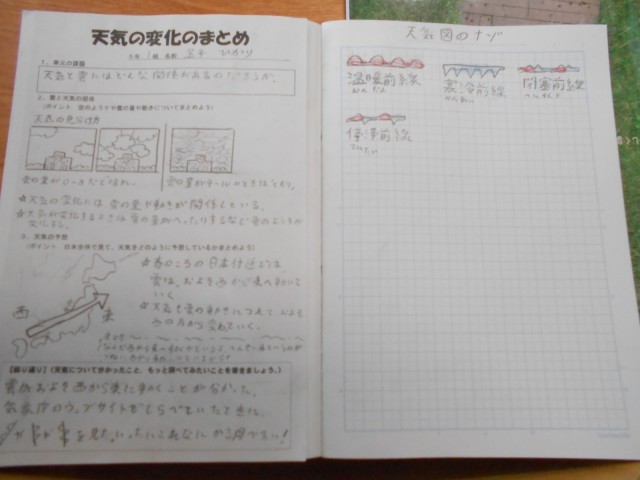 天気の変化のまとめ
5年 1組 名前 ひかり
1、単元の課題
天気と雲にはどんな関係があるのだろうか。
2、雲と天気の関係
(ポイント 空のようすや雲の量や動きについてまとめよう)
天気の見分け方
雲の量が0〜8だと晴れ。
雲の量が9〜10のときはくもり。
☆天気の変化には雲の量や動きが関係している。
☆天気が変化するときは雲の量がへったりするなど雲のようすが
変化する。
3、天気の予想
(ポイント 日本全体で見て、天気をどのように予想しているかまとめよう)
☆春のころの日本付近では、
雲は、およそ西から東へ動いて
いく
☆天気も雲の動きにつれておよそ
西の方から変わっていく。
西
東
【振り返り】(天気について分かったこと、もっと調べてみたいことを書きましょう。)
雲はおよそ西から東に動くことが分かった。
気象庁のウェブサイトをしらべていたときに
を見た。いったいこれなにか調べたい!
天気図のナゾ
温暖前線
おんだん
寒冷前線
かんれい
閉塞前線
へいそく
停滞前線
ていたい